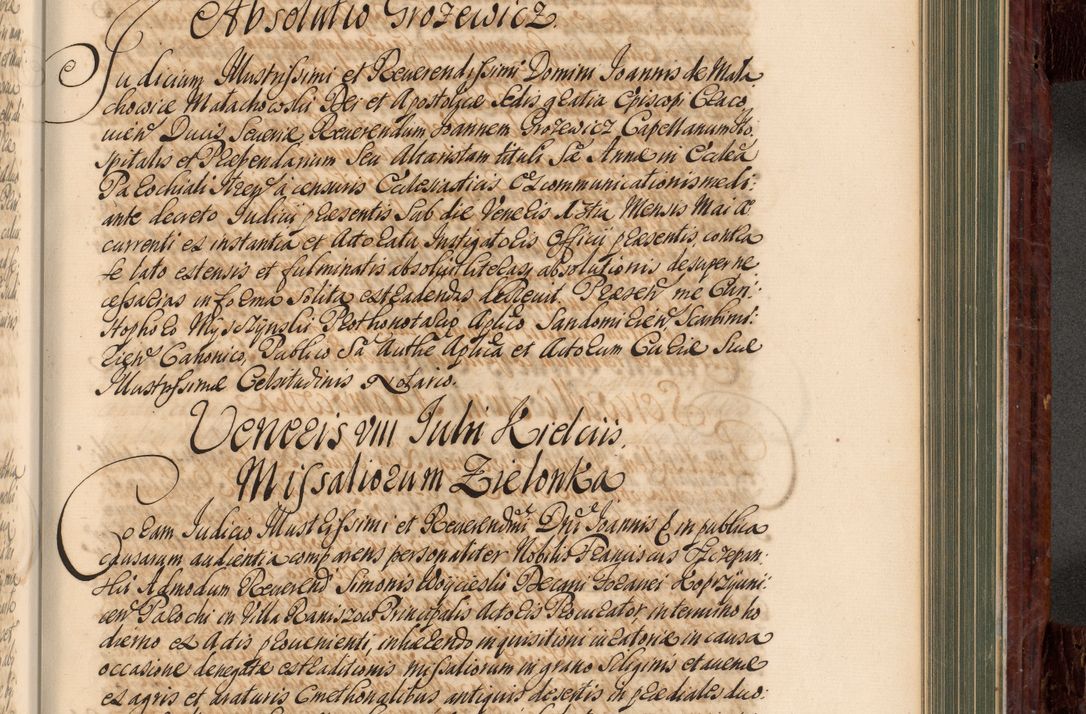 Absolutio Grozewicz.
Judicium Illustrissimi et Reverendissimi Domini Joannis de Mala
chowice Małachowski Dei et Apostolicae Sedis gratia Episcopi Craco
vien Ducis Severiae Reverendum Joannem Grozewicz Capellanum Ho
spitalis et Praebendarium seu Altaristam tituli Sae Annae in Ecclea
Parochiali a censuris Ecclesiasticis Excommunicationis medi:
ante decreto Judicii praesentis sub die Veneris Mensis Maii
currenti ex instantia et Actoratu Instigatoris Officii praesentis, contra
se lato extensis et fulminatis absolvit literasq absolutionis desuper ne
cessarias in forma solita extradendas decrevit. Praesen me Chri:
stophoro Myszzynski Prothonotario Aplico Sandomirien Scarbimi:
rien Canonico, Publico Sa Authe Aplica et Actorum Curiae Suae
Illustrissimae Celsitudinis Notario.
Veneris VIII Julii Kielciis.
Missaliorum Zielonka
Coram Judicio Illustrissimi et Reverendmi Dni Joannis E in publica
causarum audientia comparens personaliter Nobilis Franciscus Szczepan
ski Admodum Reverendi Simonis Woycieski Decani Foranei Koprzywni
cen Parochi in Villa Raniszow Principalis Actoris Procurator, in termino ho
dierno ex Actis proveniente, inhaerendo inquisitioni in causa
occasione denegatae extraditionis missaliorum in grano siliginis et avenae
ex agris et araturis Cmethonalibus antiquis desertis in praediales duo